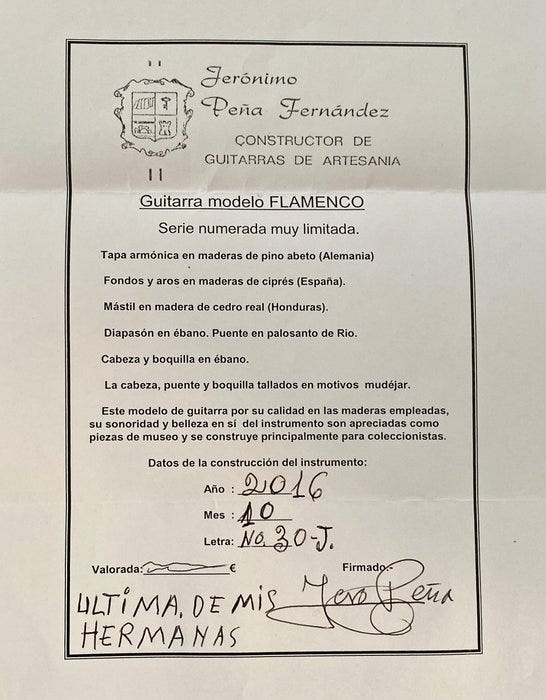 Jerónimo
Peña Fernández
CONSTRUCTOR DE
GUITARRAS DE ARTESANIA
Guitarra modelo FLAMENCO
Serie numerada muy limitada.
Tapa armónica en maderas de pino abeto (Alemania)
Fondos y aros en maderas de ciprés (España).
Mástil en madera de cedro real (Honduras).
Diapasón en ébano. Puente en palosanto de Rio.
Cabeza y boquilla en ébano.
La cabeza, puente y boquilla tallados en motivos mudéjar.
Este modelo de guitarra por su calidad en las maderas empleadas,
su sonoridad y belleza en sí del instrumento son apreciadas como
piezas de museo y se construye principalmente para coleccionistas.
Datos de la construcción del instrumento:
Año : 2016
Mes : 10
Letra: No. 30-J.
Valorada: € Firmado.-
ULTIMA, DE MIS Jero Peña
HERMANAS